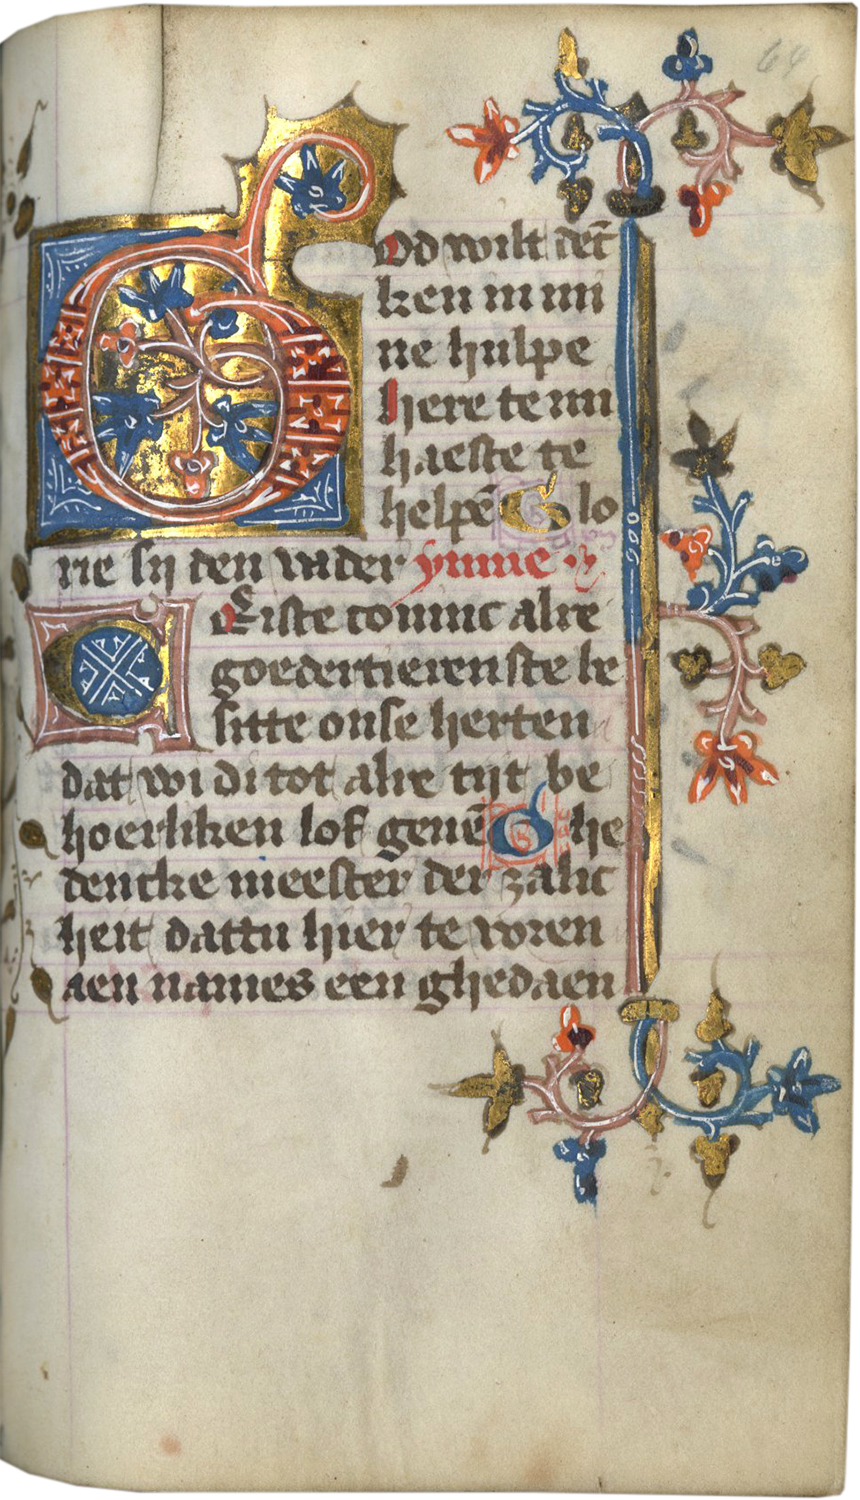 64
God wilt dēc
ken in mi
ne hulpe
here te mi
haeste te
helpē Glo
rie sy den vader ymne
Criste coninc alre
goedertierenste be
sitte onse herten
dat wi di tot alre tijt be
hoerliken lof geuē Ghe
dencke meester der zalic
heit dattu hier te voren
aen names een ghedaen